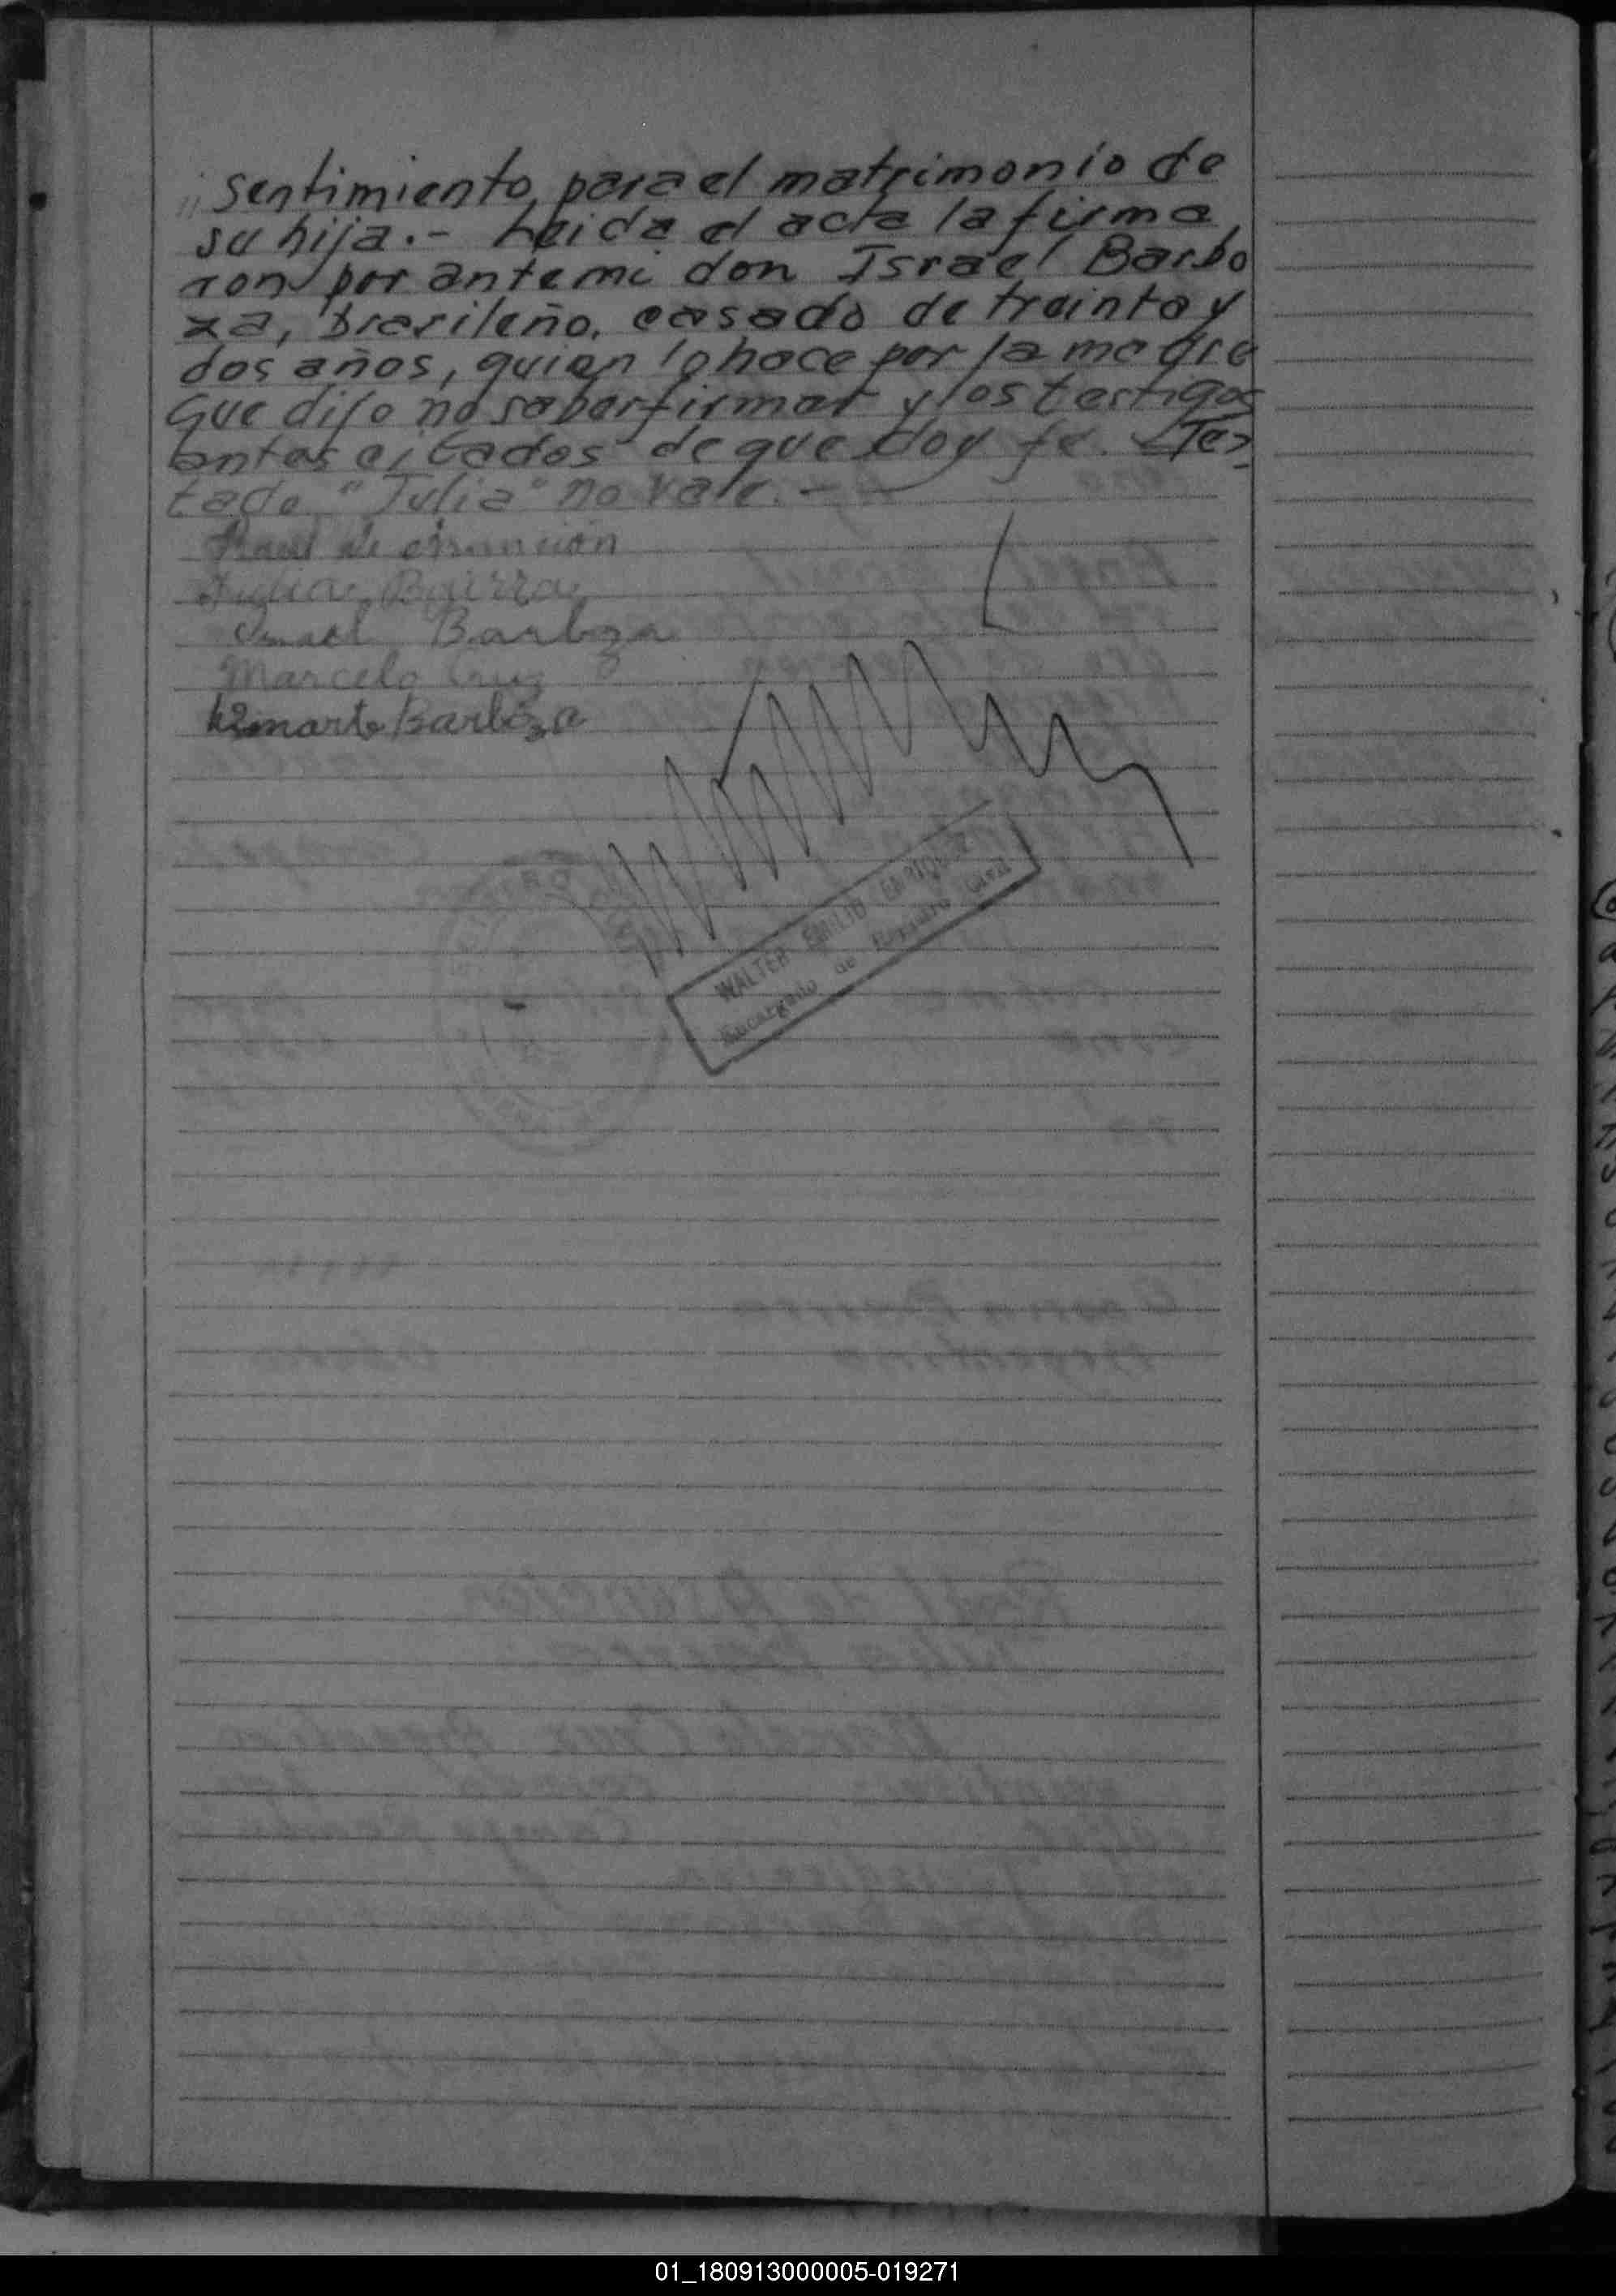 "sentimiento para el matrimonio de
su hija.- Leida el acta la firma
ron por ante mi don Israel Barbo
za, brasileño, casado de treinta y
dos años, quien lo hace por la madre
que dijo no saber firmar y los testigos
antes citados de que doy fe. Tes
tado "Julia" no vale.-
Raul de
Julia Bairra
Israel Barboza
Marcelo Cruz
Barboza
WALTER EMILIO
Encargado de Registro Civil
01_180913000005-019271